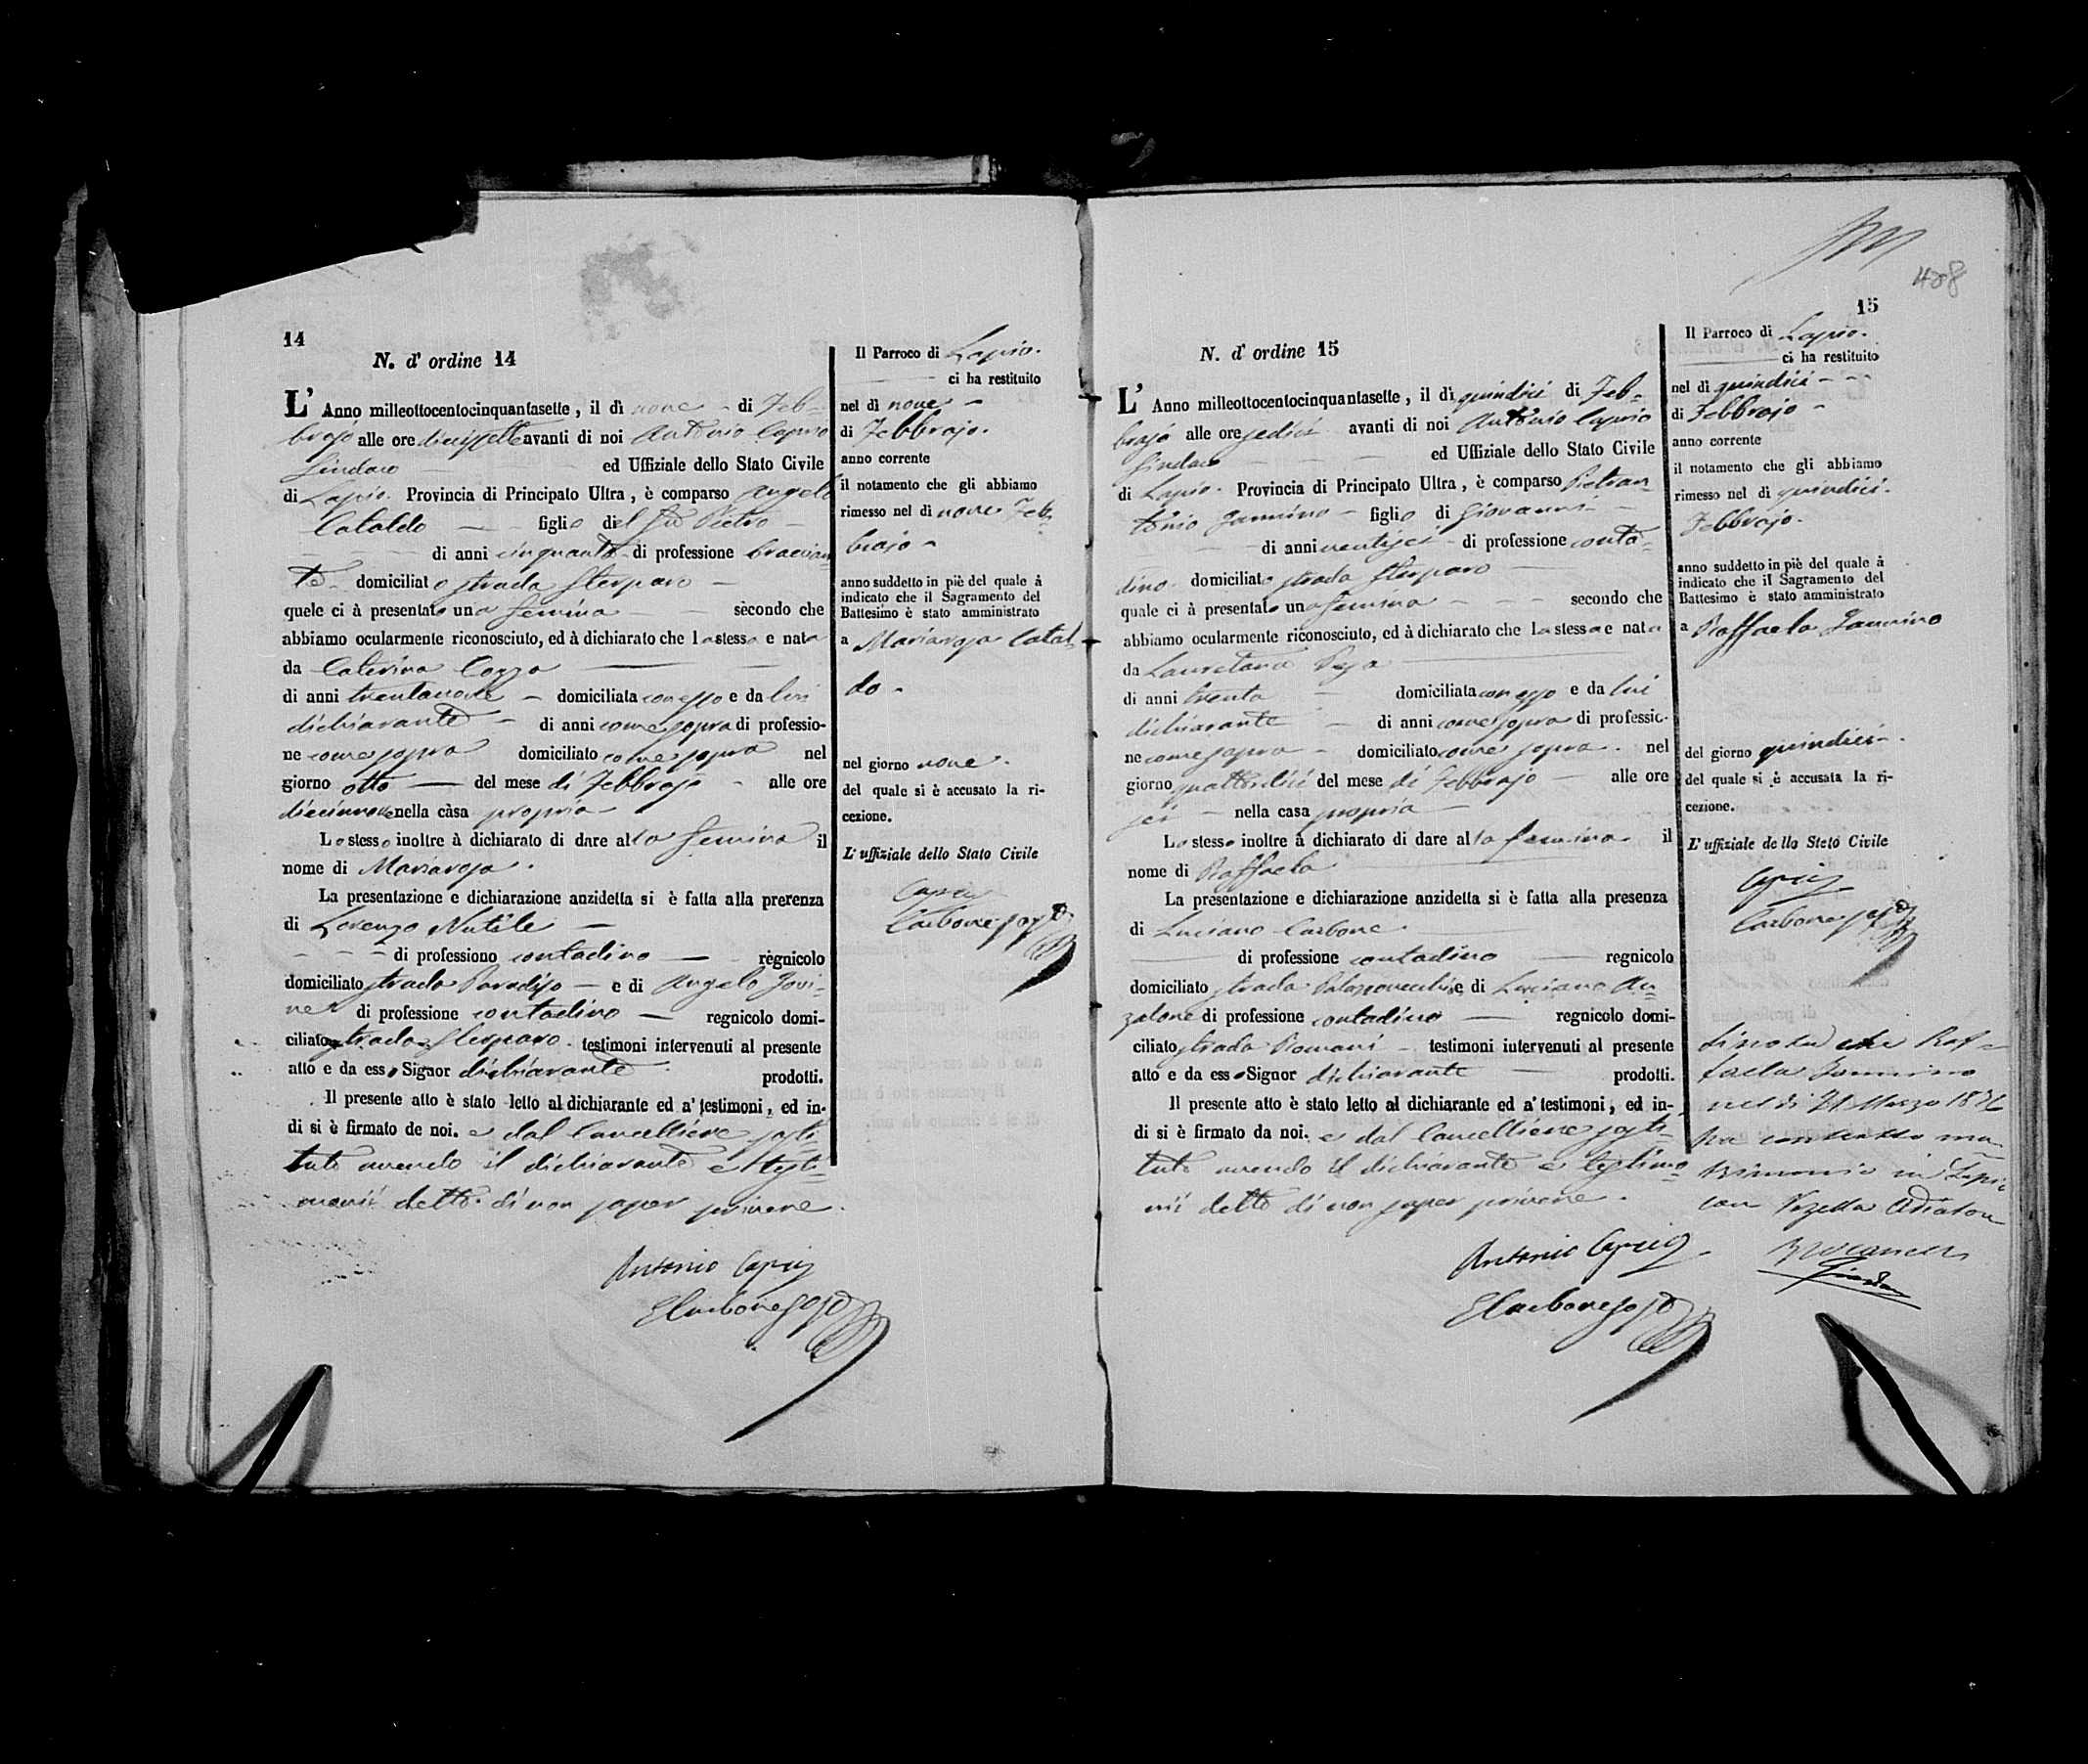 14
N. d' ordine 14
L' Anno milleottocentocinquantasette, il dì nove di Feb-
brajo alle ore diecissette avanti di noi Antonio Caprio
Sindaco ed Uffiziale dello Stato Civile
di Lapio. Provincia di Principato Ultra, è comparso Angelo
Cataldo figlio del fu Pietro
di anni cinquanta di professione braccian
te domiciliato strada Sterparo
quele ci à presentato una femina sècondo che
abbiamo ocularmente riconosciuto, ed à dichiarato che la stessa e nata
da Caterina Cozzo
di anni trentanove domiciliata con esso e da lui
dichiarante di anni come sopra di professio-
ne come sopra domiciliato come sopra nel
giorno otto del mese di Febbrajo alle ore
diecinnove nella càsa propria
Lo stesso inoltre à dichiarato di dare alla femina il
nome di Mariarosa.
La presentazione e dichiarazione anzidetta si è fatta alla prerenza
di Lorenzo Nutile
di professiono contadino regnicolo
domiciliato strada Paradiso e di Angelo Jovi-
ne di professione contadino regnicolo domi-
ciliato strada Sterparo. testimoni intervenuti al presente
atto e da esso Signor dichiarante prodotti.
Il presente atto è stato letto al dichiarante ed a' testimoni, ed in-
di si è firmato de noi. e dal Cancelliere sosti-
tuto avendo il dichiarante e testi-
monii detto di non saper scrivere.
Antonio Caprio
E Carbone sosto
Il Parroco di Lapio.
ci ha restituito
nel dì nove
di Febbrajo.
anno corrente
il notamento che gli abbiamo
rimesso nel dì nove Feb-
brajo
anno suddetto in piè del quale à
indicato che il Sagramento del
Battesimo è stato amministrato
a Mariarosa Catal
do.
nel giorno nove.
del quale si è accusato la ri-
cezione.
L' uffiziale dello Stato Civile
Caprio
Carbone sosto
408
15
N. d' ordine 15
L' Anno milleottocentocinquantasette, il dì quindici di Feb-
brajo alle ore sedici avanti di noi Antonio Caprio
Sindaco ed Uffiziale dello Stato Civile
di Lapio. Provincia di Principato Ultra, è comparso Pietran-
tonio Jannino figlio di Giovanni
di anni ventisei di professione conta-
dino domiciliato strada Sterparo
quale ci à presentato una femina secondo che
abbiamo ocularmente riconosciuto, ed à dichiarato che la stessa e nata
da Lauretana
di anni trenta domiciliata con esso e da lui
dichiarante di anni come sopra di professio-
ne come sopra domiciliato come sopra. nel
giorno quattordici del mese di Febbrajo alle ore
sei nella casa propria
Lo stesso inoltre à dichiarato di dare alla femina il
nome di Raffaela
La presentazione e dichiarazione anzidetta si è fatta alla presenza
di Luciano Carbone.
di professione contadino regnicolo
domiciliato strada e di Luciano An-
zalone di professione contadino regnicolo domi-
ciliato strada Romani testimoni iutervenuti al presente
atto e da esso Signor dichiarante prodotti.
Il presente atto è stato letto al dichiarante ed a' testimoni, ed in-
di si è firmato da noi. e dal Cancelliere sosti-
tuto avendo il dichiarante e testimo-
nii detto di non saper scrivere.
Antonio Caprio
E Carbone sosto
Il Parroco di Lapio.
ci ha restituito
nel dì quindici
di Febbrajo
anno corrente
il notamento che gli abbiamo
rimesso nel dì quindici
Febbrajo.
anno suddetto in piè del quale à
indicato che il Sagramento del
Battesimo è stato amministrato
a Raffaela Jannino
del giorno quindici.
del quale si è accusata la ri-
cezione.
L' uffiziale dello Steto Civile
Caprio
Carbone sosto
Si nota che Raf-
faela Jannino
nel dì 21 Marzo
ha contratto ma-
trimonio in Lapio
con